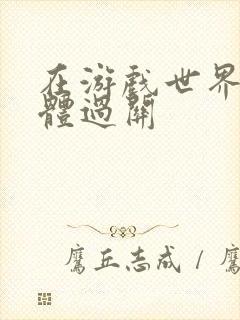 在游戏世界
體過關
鷹丘志成 / 鷹